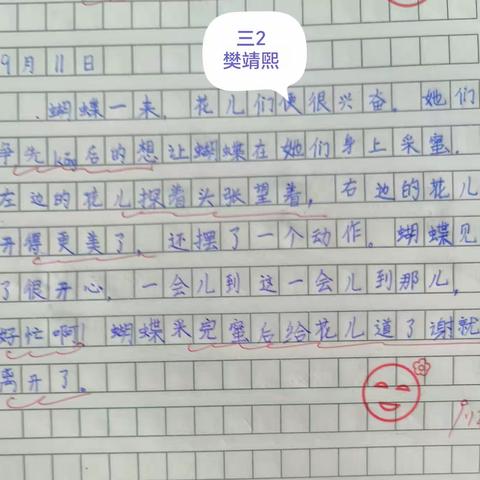 三2
樊靖熙
9月11日
蝴蝶一来，花儿们便很兴奋。她们
争先kǒng后的想让蝴蝶在她们身上采蜜。
左边的花儿探着头张望着，右边的花儿
开得更美了，还摆了一个动作。蝴蝶见
了很开心，一会儿到这一会儿到那儿，
好忙啊！蝴蝶采完蜜后给花儿道了谢就
离开了。